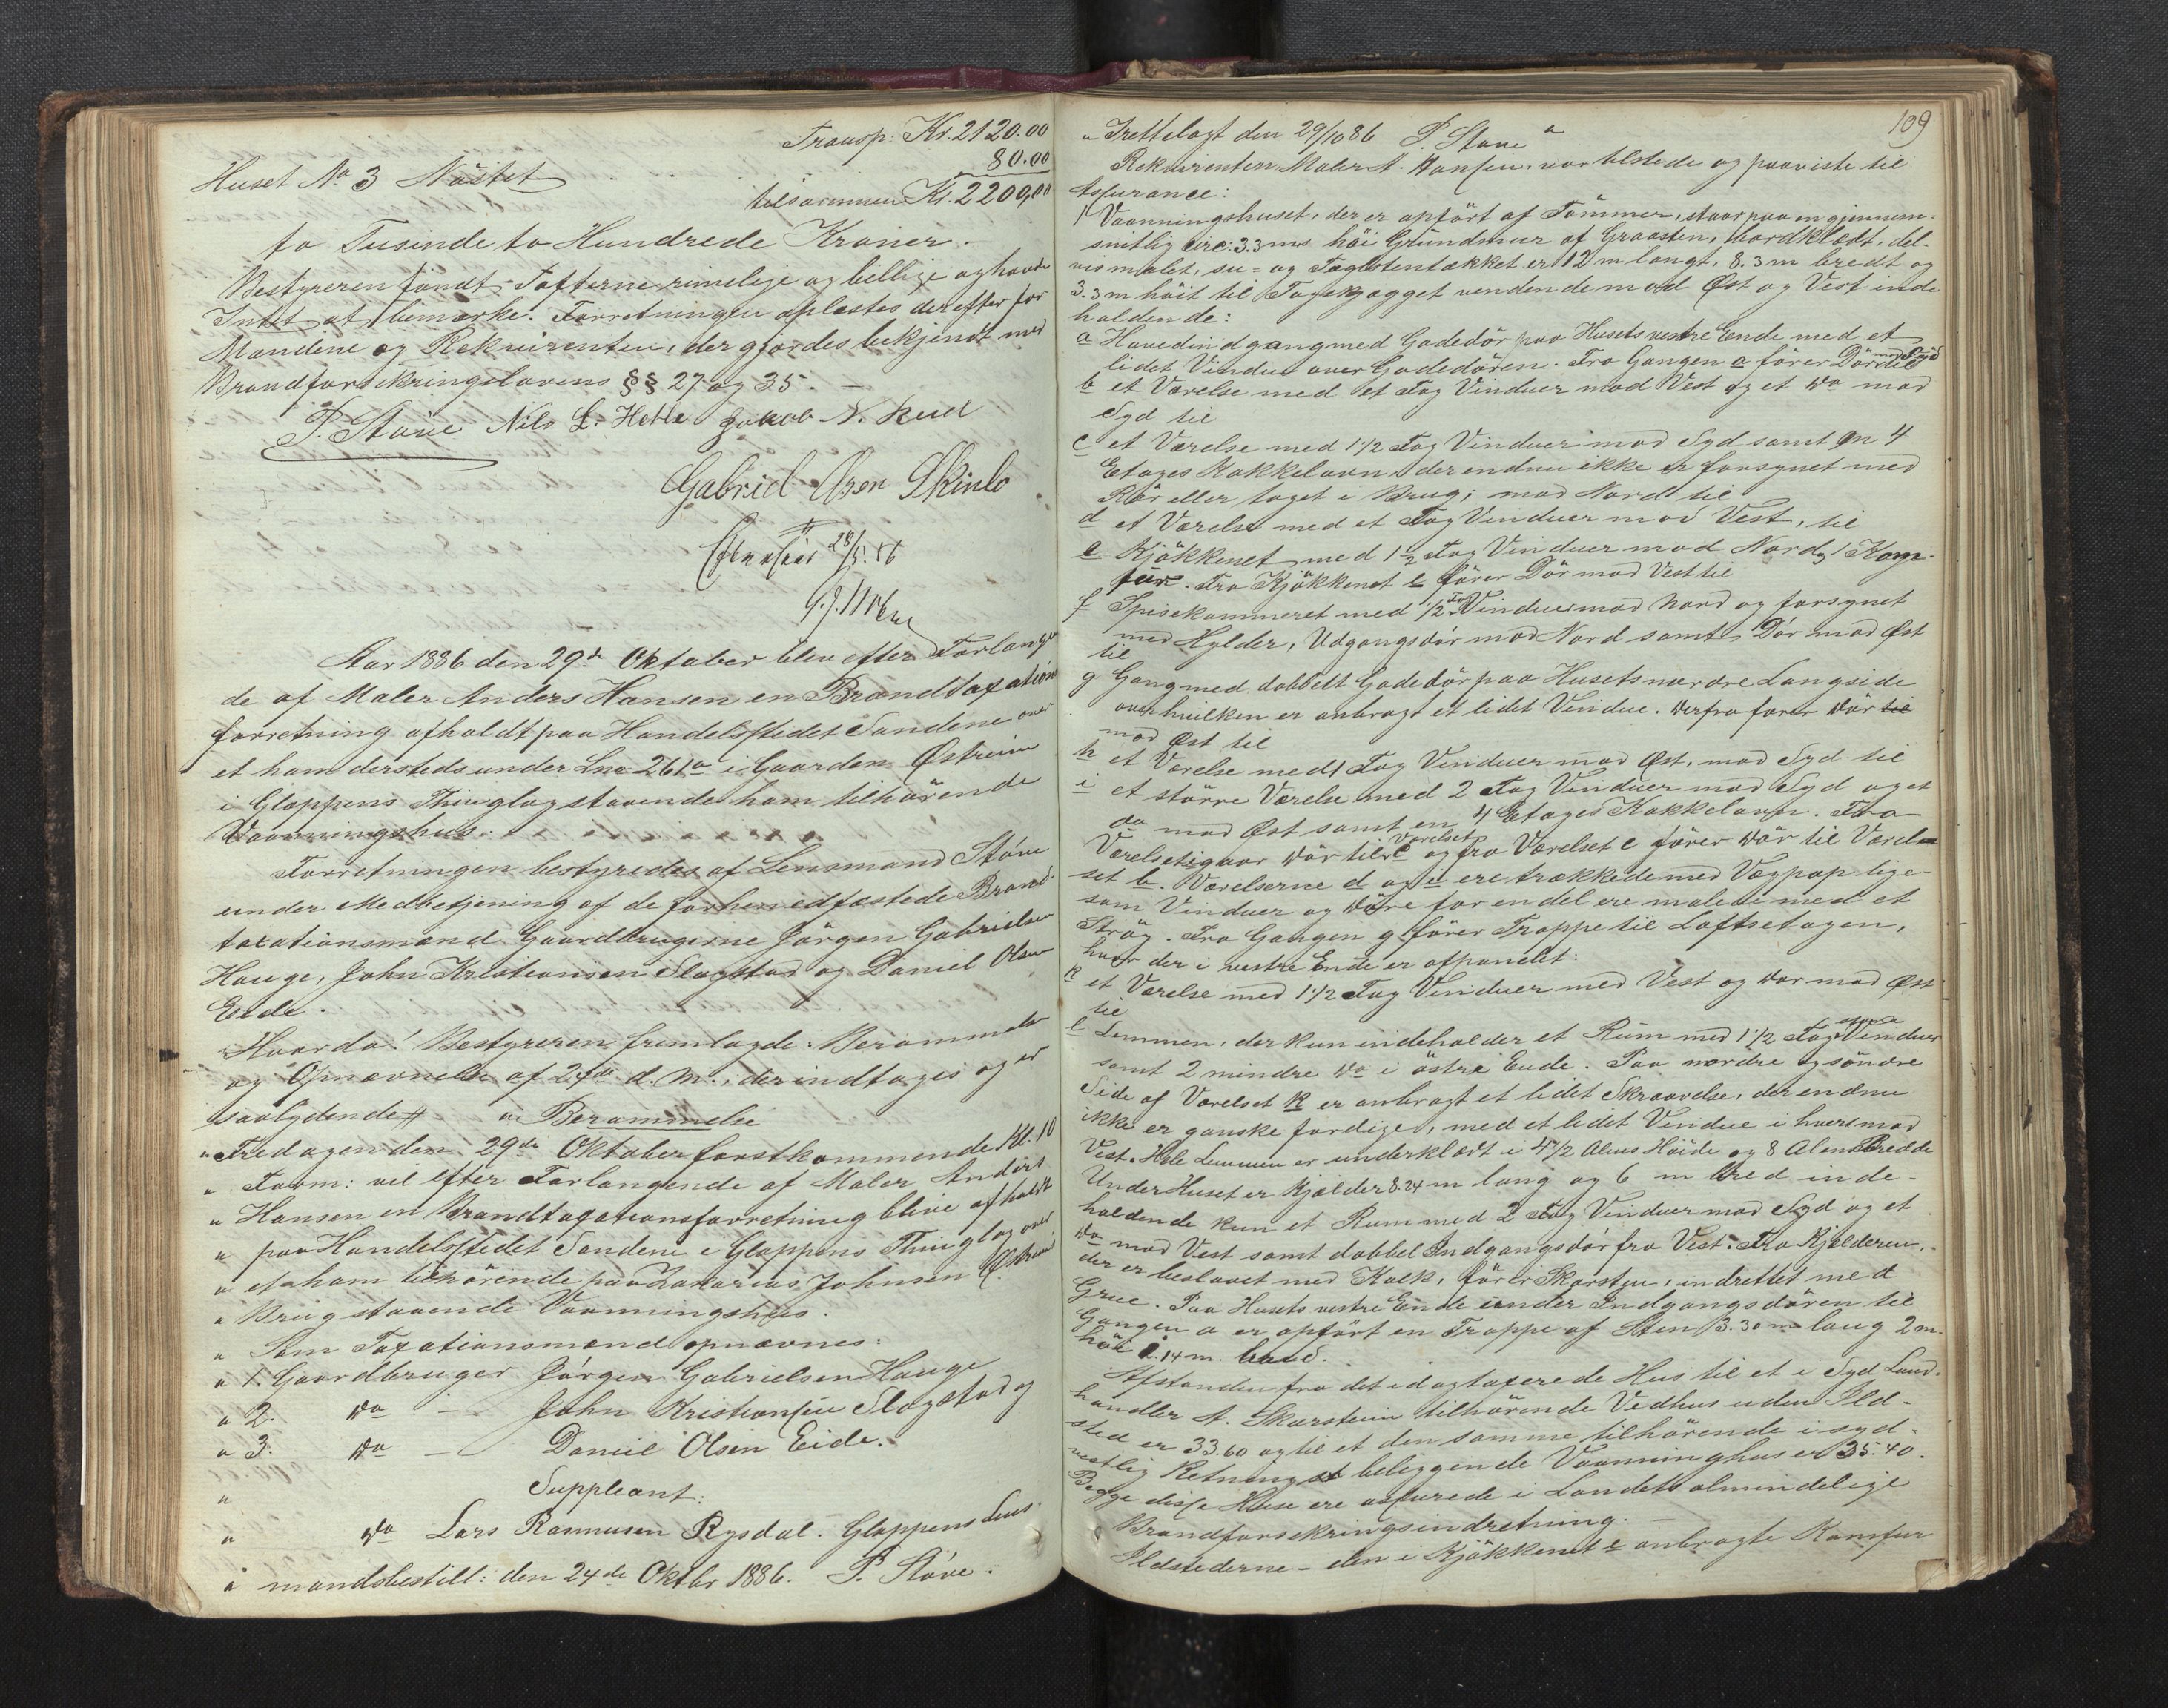 Transp: Kr. 2120.00
Huset No 3 Nöstet 80.00
tilsammen Kr. 2200,00
to Tusinde to Hundrede Kroner.
Bestyreren fandt Taxterne rimelige og billige og havde
Intet at bemærke. Forretningen oplæstes derefter for
Mændene og Rekvirenten, der gjordes bekjendt med
Brandforsikringslovens §§ 27 og 35. —
P. Støve Nils L. Hetle Jakob N. Reed
Gabriel Olsen Skinlo
28/5. 86
Aar 1886 den 29de Oktober blev efter Forlangen
de af Maler Anders Hansen en Brandtaxations
forretning afholdt paa Handelsstedet Sandene over
et ham dersteds under Lno 261a i Gaarden Østreim
i Gloppens Thinglag staaende ham tilhörende
Vaaningshus.
Forretningen bestyredes af Lensmand Støve
under Medbetjening af de forhen edfæstede Brand-
taxationsmænd Gaardbrugerne Jörgen Gabrielsen
Hauge, John Kristiansen Slagstad og Daniel Olsen
Eide.
Hvorda: Bestyreren fremlagde Berammelse
og Opnævnelse af 24de d. M., der indtages og er
saalydende: „ Berammelse
„ Fredagen den 29de Oktober førstkommende Kl. 10
„ Form: vil efter Forlangende af Maler Anders
„ Hansen en Brandtaxationsforretning blive afholdt
„ paa Handelsstedet Sandene i Gloppens Thinglag over
„ et ham tilhörende paa Zakarias Johnsen Østreim
„ Brug staaende Vaaningshus.
„ Som Taxationsmænd opnævnes:
„ 1. Gaardbruger Jörgen Gabrielsen Hauge
„ 2. Do — John Kristiansen Slagstad og
„ 3. Do — Daniel Olsen Eide.
„ Suppleant:
„ Do Lars Rasmusen Rysdal. Gloppens Lens-
„ mandsbestill: den 24de Oktbr 1886. P. Støve.
109
„ Fremlagt den 29/10 86 P. Støve „
Rekvirenten Maler A. Hansen var tilstede og paaviste til
Assurance:
1 Vaaningshuset, der er opfört af Tömmer, staar paa en gjennem-
snitlig circ: 3.3 m. höi Grundmur af Graasten, bordklædt, del-
vis malet, su- og Taglstentækket er 12 m langt, 8.3 m bredt og
3.3 m höit til Tagskjægget vendende mod Øst og Vest inde
holdende:
a Hovedindgang med Gadedör paa Husets vestre Ende med et
lidet Vindue over Gadedören. Fra Gangen a förer Dör mod Syd til
b et Værelse med et Fag Vinduer mod Vest og et do mod
Syd til
c et Værelse med 1 1/2 Fag Vinduer mod Syd samt en 4
Etages Kakkelovn der endnu ikke er forsynet med
Rör eller taget i Brug; mod Nord til
d et Værelse med et Fag Vinduer mod Vest, til
e Kjökkenet med 1 1/2 Fag Vinduer mod Nord og 1 Kom-
fur. Fra Kjökkenet e förer Dör mod Vest til
f Spisekammeret med 1/2 Fag Vinduer mod Nord og forsynet
med Hylder, Udgangsdör mod Nord samt Dör mod Øst
til
g Gang med dobbelt Gadedör paa Husets nordre Langside
over hvilken er anbragt et lidet Vindue. Derfra förer Dör til
mod Øst til
h et Værelse med 1 Fag Vinduer mod Øst, mod Syd til
i et större Værelse med 2 Fag Vinduer mod Syd og et
do mod Øst samt en 4 Etages Kakkelovn. Fra
Værelset i gaar Dör til Værelset c og fra Værelset c förer Dör til Værel-
set b. Værelserne d og i ere trækkede med Vægpap lige-
som Vinduer og Döre for en del ere malede med et
Strög. Fra Gangen g förer Trappe til Loftsetagen,
hvor der i vestre Ende er afpanelet:
k et Værelse med 1 1/2 Fag Vinduer med Vest og Dör mod Øst
til
l Lemmen, der kun indeholder et Rum med 1 1/2 Fag smaa Vinduer
samt 2 mindre do i östre Ende. Paa nordre og söndre
Side af Værelset k er anbragt et lidet Skraaværelse, der endnu
ikke er ganske færdige, med et lidet Vindue i hver mod
Vest. Hele Lemmen er underklædt i 4 1/2 Alens Höide og 8 Alens Bredde
Under Huset er Kjælder 8.24 m lang og 6 m bred inde-
holdende kun et Rum med 2 Fag Vinduer mod Syd og et
do mod Vest samt dobbel Indgangsdör fra Vest. Fra Kjælderen,
der er beslaaet med Kalk, förer Skorsten, indrettet med
Grue. Paa Husets vestre Ende under Indgangsdören til
Gangen a er opfört en Trappe af Sten 3.30 m lang 2 m.
höi 2.14 m. bred.
Afstanden fra det idag taxerede Hus til et i Syd Land-
handler A. Skarstein tilhörende Vedhus uden Ild-
sted er 33.60 og til et den samme tilhörende i syd-
vestlig Retning beliggende Vaaninghus er 35.40.
Begge disse Huse ere assurede i Landets almindelige
Brandforsikringsindretning. —
Ildstederne - den i Kjökkenet e anbragte Komfur